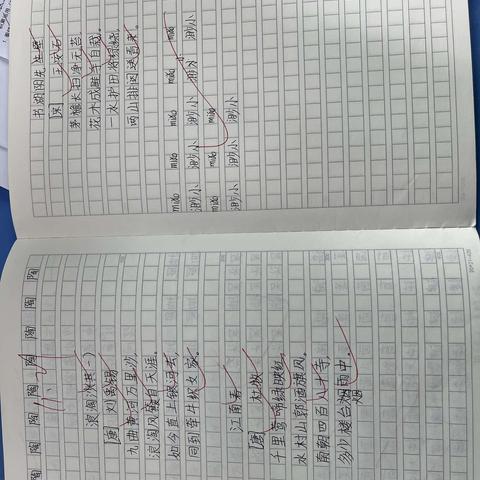 陶 陶 陶 陶 陶 陶 陶 陶
浪淘沙(其一)
[唐] 刘禹锡
九曲黄河万里沙,
浪淘风簸自天涯。
如今直上银河去,
同到牵牛织女家。
江南春
[唐] 杜牧
千里莺啼绿映红,
水村山郭酒旗风。
南朝四百八十寺,
多少楼台烟雨中。
烟
书湖阴先生壁
[宋] 王安石
茅檐长扫净无苔,
花木成畦手自栽。
一水护田将绿绕,
两山排闼送青来。
miǎo miǎo miǎo miǎo miǎo
渺小 渺小 渺小 渺小 渺小
miǎo miǎo miǎo
渺小 渺小 渺小